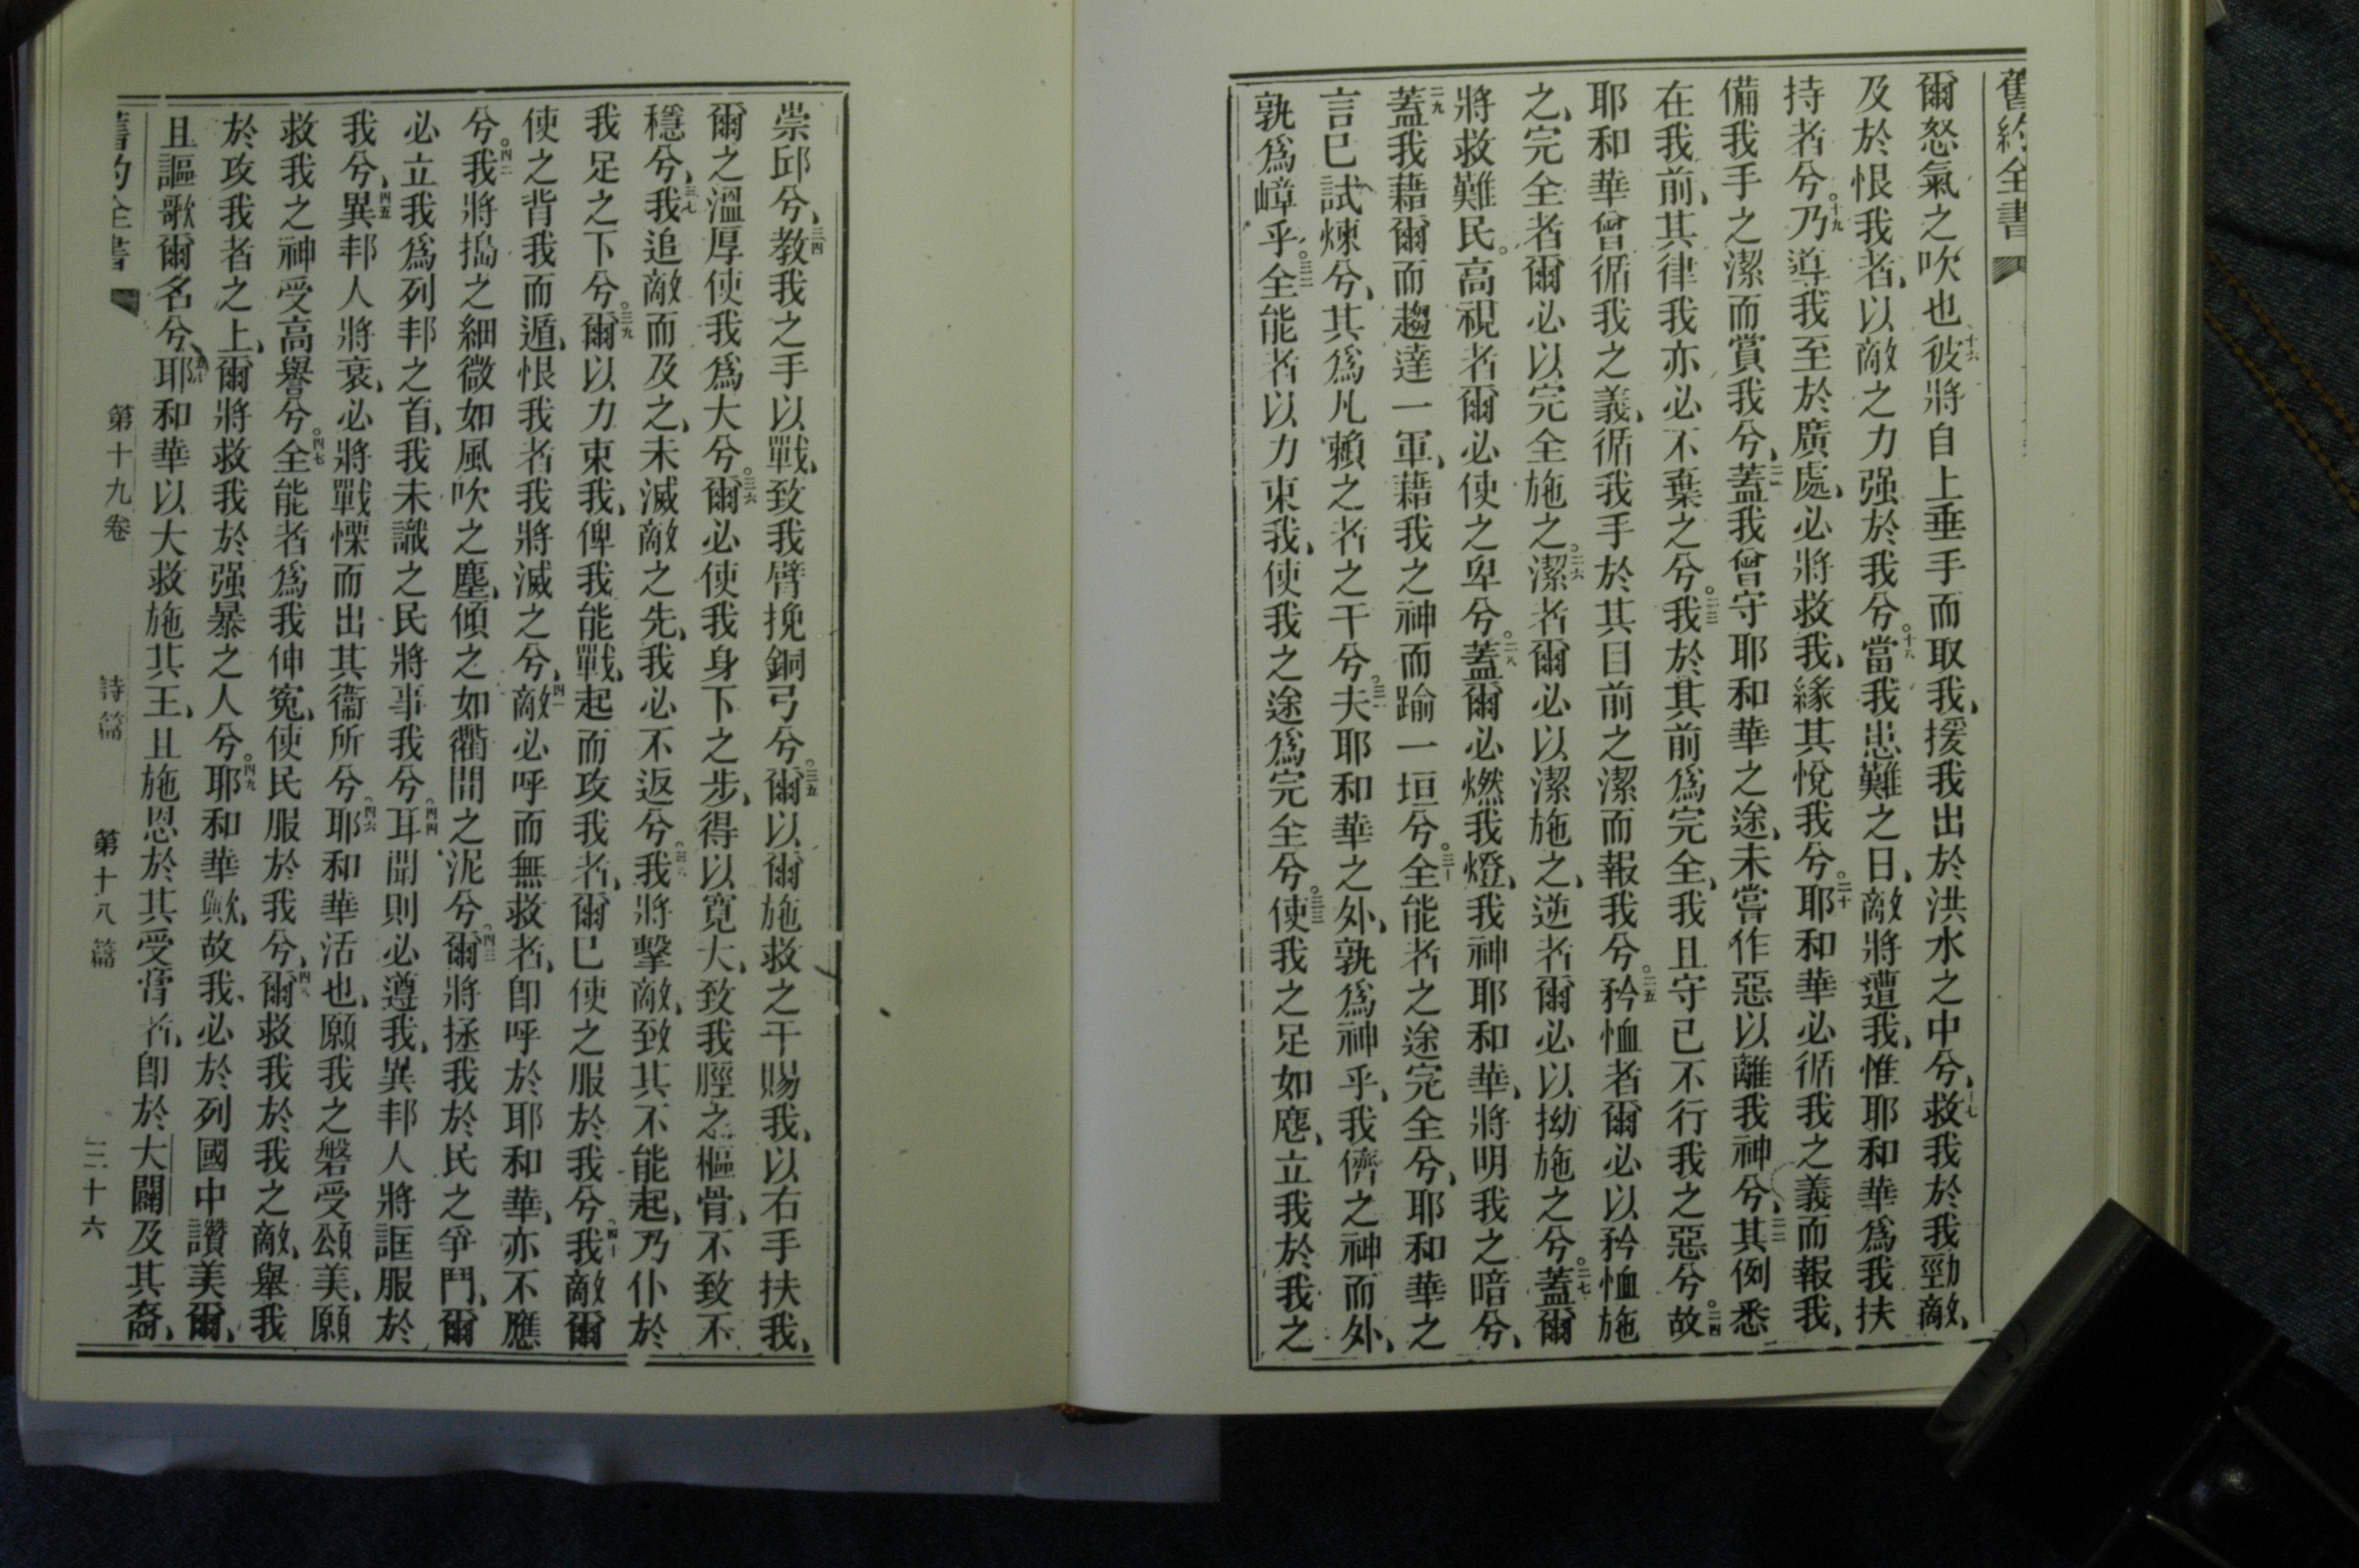 舊約全書
爾怒氣之吹也、十六彼將自上垂手而取我、援我出於洪水之中兮、十七救我於我勁敵、
及於恨我者、以敵之力强於我兮。十八當我患難之日、敵將遭我、惟耶和華爲我扶
持者兮。十九乃導我至於廣處、必將救我、緣其悅我兮。二十耶和華必循我之義而報我、
備我手之潔而賞我兮、二一蓋我曾守耶和華之途、未嘗作惡以離我神兮、二二其例悉
在我前、其律我亦必不棄之兮。二三我於其前爲完全、我且守己不行我之惡兮。二四故
耶和華曾循我之義、循我手於其目前之潔而報我兮。二五矜恤者爾必以矜恤施
之、完全者爾必以完全施之。二六潔者爾必以潔施之、逆者爾必以拗施之兮。二七蓋爾
將救難民。高視者爾必使之卑兮。二八蓋爾必燃我燈、我神耶和華、將明我之暗兮、
二九蓋我藉爾而趨達一軍、藉我之神而踰一垣兮。三十全能者之途完全兮、耶和華之
言已試煉兮、其爲凡賴之者之干兮。三一夫耶和華之外、孰爲神乎、我儕之神而外、
孰爲嶂乎。三二全能者以力束我、使我之途爲完全兮。三三使我之足如麀、立我於我之
崇邱兮、三四教我之手以戰、致我臂挽銅弓兮。三五爾以爾施救之干賜我、以右手扶我、
爾之溫厚使我爲大兮。三六爾必使我身下之步、得以寬大、致我脛之樞骨、不致不
穩兮、三七我追敵而及之、未滅敵之先、我必不返兮。三八我將擊敵、致其不能起、乃仆於
我足之下兮。三九爾以力束我、俾我能戰、起而攻我者、爾已使之服於我兮。四十我敵爾
使之背我而遁、恨我者我將滅之兮、四一敵必呼而無救者、卽呼於耶和華、亦不應
兮。四二我將搗之細微如風吹之塵、傾之如衢間之泥兮。四三爾將拯我於民之爭鬥、爾
必立我爲列邦之首、我未識之民將事我兮。四四耳聞則必遵我、異邦人將誆服於
我兮、四五異邦人將衰、必將戰慄而出其衞所兮。四六耶和華活也、願我之磐受頌美、願
救我之神受高舉兮。四七全能者爲我伸寃、使民服於我兮、四八爾救我於我之敵、舉我
於攻我者之上、爾將救我於强暴之人兮。四九耶和華歟、故我、必於列國中讚美爾、
且謳歌爾名兮、五十耶和華以大救施其王、且施恩於其受膏者、卽於大闢及其裔、
舊約全書 第十九卷 詩篇 第十八篇 二十六